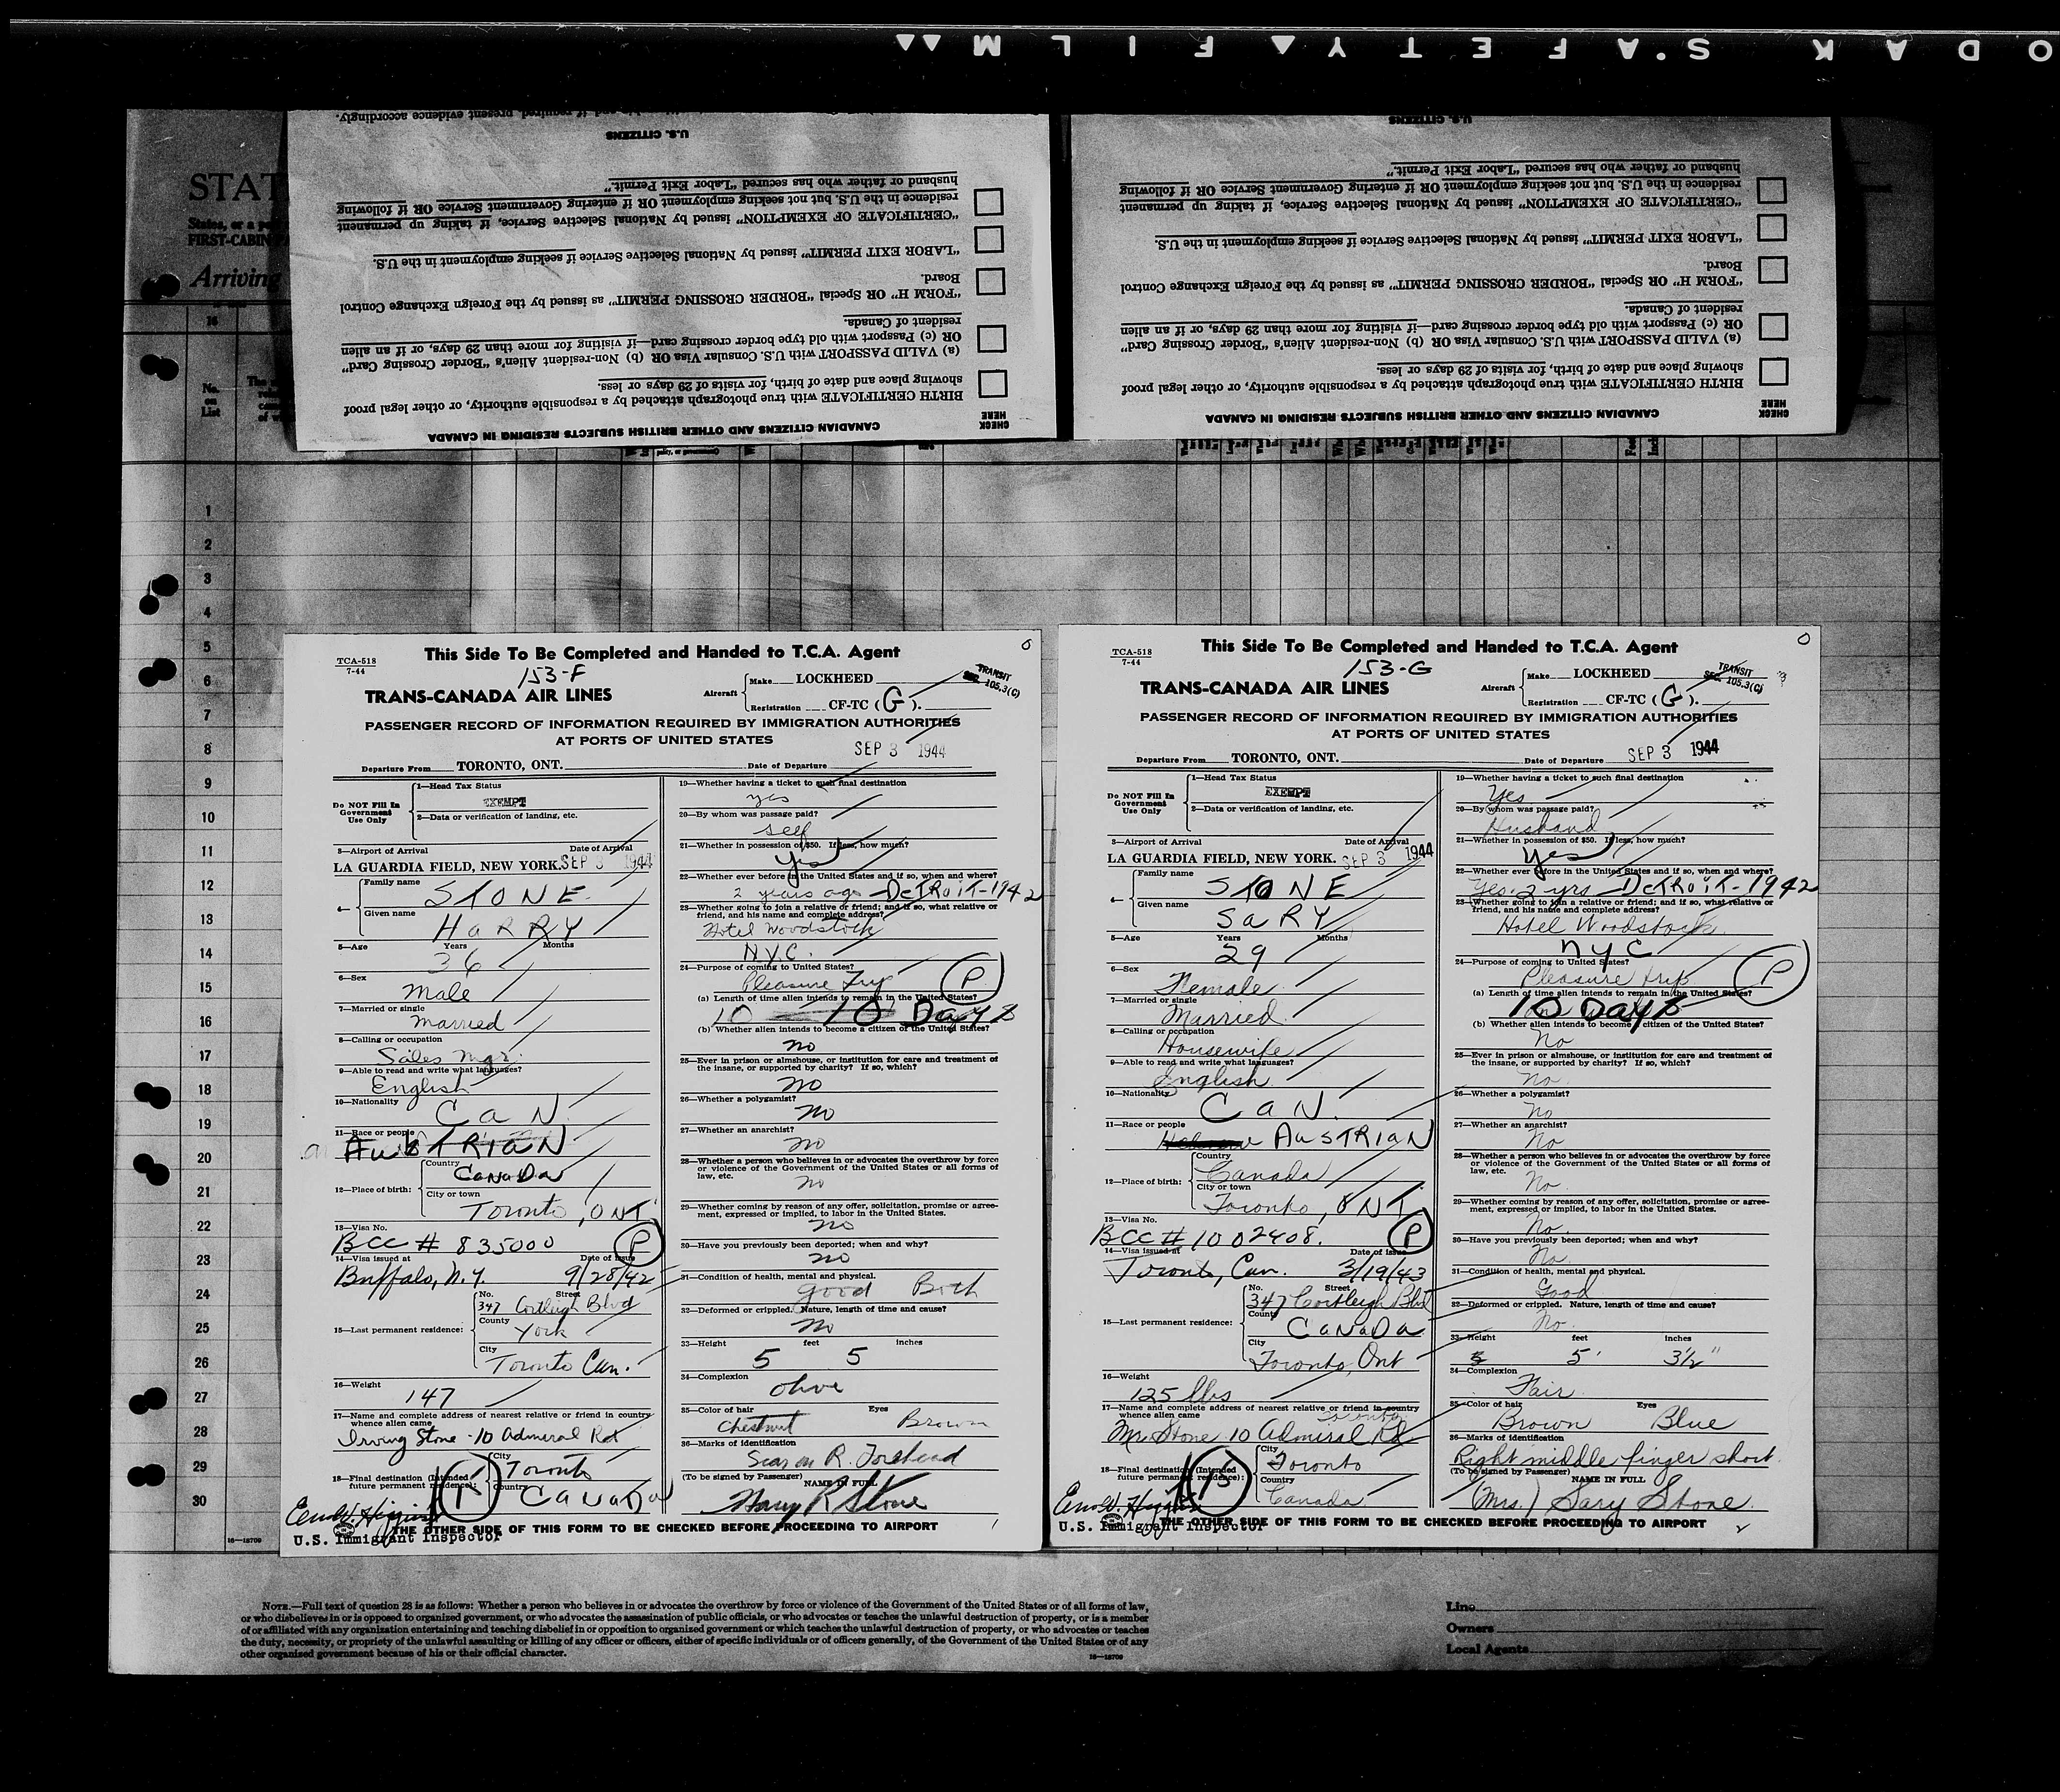 KODAK S'AFETY FILM
STAT
States, or a
FIRST-CABIN
Arriving
U.S. CITIZENS
husband or father who has secured "Labor Exit Permit."
residence in the U.S. but not seeking employment OR if entering Government Service OR if following
"CERTIFICATE OF EXEMPTION" issued by National Selective Service, if taking up permanent
"LABOR EXIT PERMIT" issued by National Selective Service if seeking employment in the U.S.
Board.
"FORM H" OR Special "BORDER CROSSING PERMIT" as issued by the Foreign Exchange Control
resident of Canada.
OR (c) Passport with old type border crossing card—if visiting for more than 29 days, or if an alien
(a) VALID PASSPORT with U.S. Consular Visa OR (b) Non-resident Alien's "Border Crossing Card"
showing place and date of birth, for visits of 29 days or less.
BIRTH CERTIFICATE with true photograph attached by a responsible authority, or other legal proof
CHECK HERE
CANADIAN CITIZENS AND OTHER BRITISH SUBJECTS RESIDING IN CANADA
U.S. CITIZENS
husband or father who has secured "Labor Exit Permit."
residence in the U.S. but not seeking employment OR if entering Government Service OR if following
"CERTIFICATE OF EXEMPTION" issued by National Selective Service, if taking up permanent
"LABOR EXIT PERMIT" issued by National Selective Service if seeking employment in the U.S.
Board.
"FORM H" OR Special "BORDER CROSSING PERMIT" as issued by the Foreign Exchange Control
resident of Canada.
OR (c) Passport with old type border crossing card—if visiting for more than 29 days, or if an alien
(a) VALID PASSPORT with U.S. Consular Visa OR (b) Non-resident Alien's "Border Crossing Card"
showing place and date of birth, for visits of 29 days or less.
BIRTH CERTIFICATE with true photograph attached by a responsible authority, or other legal proof
CHECK HERE
CANADIAN CITIZENS AND OTHER BRITISH SUBJECTS RESIDING IN CANADA
16
No. on List
1
2
3
4
5
6
7
8
9
10
11
12
13
14
15
16
17
18
19
20
21
22
23
24
25
26
27
28
29
30
This Side To Be Completed and Handed to T.C.A. Agent
TCA-518
7-44
153-F
TRANS-CANADA AIR LINES
Aircraft Make LOCKHEED
Registration CF-TC (G).
TRANSIT
SEC. 105.3(C)
PASSENGER RECORD OF INFORMATION REQUIRED BY IMMIGRATION AUTHORITIES
AT PORTS OF UNITED STATES
SEP 3 1944
Departure From TORONTO, ONT. Date of Departure
Do NOT Fill In Government Use Only
1—Head Tax Status
EXEMPT
2—Data or verification of landing, etc.
3—Airport of Arrival Date of Arrival
LA GUARDIA FIELD, NEW YORK. SEP 3 1944
4— Family name
STONE
Given name
HARRY
5—Age Years Months
36
6—Sex
Male
7—Married or single
Married
8—Calling or occupation
Sales Mgr.
9—Able to read and write what languages?
English
10—Nationality
CAN
11—Race or people
AUSTRIAN
12—Place of birth: Country
CANADA
City or town
Toronto, ONT.
13—Visa No.
BCC # 835000 P
14—Visa issued at Date of issue
Buffalo, N.Y. 9/28/42
15—Last permanent residence: No. Street
347 Cortleigh Blvd
County
York
City
Toronto Can.
16—Weight
147
17—Name and complete address of nearest relative or friend in country
whence alien came
Irving Stone - 10 Admiral Rd
18—Final destination (Intended future permanent residence): City
Toronto
Country
Canada
U.S. Immigrant Inspector
19—Whether having a ticket to such final destination
yes
20—By whom was passage paid?
self
21—Whether in possession of $50. If less, how much?
yes
22—Whether ever before in the United States and if so, when and where?
2 years ago DETROIT-1942
23—Whether going to join a relative or friend; and if so, what relative or
friend, and his name and complete address?
Hotel Woodstock
N.Y.C.
24—Purpose of coming to United States?
Pleasure Trip P
(a) Length of time alien intends to remain in the United States?
10 10 Days
(b) Whether alien intends to become a citizen of the United States?
no
25—Ever in prison or almshouse, or institution for care and treatment of
the insane, or supported by charity? If so, which?
no
26—Whether a polygamist?
no
27—Whether an anarchist?
no
28—Whether a person who believes in or advocates the overthrow by force
or violence of the Government of the United States or of all forms of
law, etc.
no
29—Whether coming by reason of any offer, solicitation, promise or agree-
ment, expressed or implied, to labor in the United States.
no
30—Have you previously been deported; when and why?
no
31—Condition of health, mental and physical.
good Both
32—Deformed or crippled. Nature, length of time and cause?
no
33—Height feet inches
5 5
34—Complexion
olive
35—Color of hair Eyes
Chestnut Brown
36—Marks of identification
Scar on R. Forehead
(To be signed by Passenger) NAME IN FULL
Harry R Stone
THE OTHER SIDE OF THIS FORM TO BE CHECKED BEFORE PROCEEDING TO AIRPORT
This Side To Be Completed and Handed to T.C.A. Agent
TCA-518
7-44
153-G
TRANS-CANADA AIR LINES
Aircraft Make LOCKHEED
Registration CF-TC (G).
TRANSIT
SEC. 105.3(C)
PASSENGER RECORD OF INFORMATION REQUIRED BY IMMIGRATION AUTHORITIES
AT PORTS OF UNITED STATES
SEP 3 1944
Departure From TORONTO, ONT. Date of Departure
Do NOT Fill In Government Use Only
1—Head Tax Status
EXEMPT
2—Data or verification of landing, etc.
3—Airport of Arrival Date of Arrival
LA GUARDIA FIELD, NEW YORK. SEP 3 1944
4— Family name
STONE
Given name
SARY
5—Age Years Months
29
6—Sex
Female
7—Married or single
Married
8—Calling or occupation
Housewife
9—Able to read and write what languages?
English
10—Nationality
CAN.
11—Race or people
AUSTRIAN
12—Place of birth: Country
Canada
City or town
Toronto, ONT.
13—Visa No.
BCC # 1002408. P
14—Visa issued at Date of issue
Toronto, Can. 3/19/43
15—Last permanent residence: No. Street
347 Cortleigh Blvd
County
CANADA
City
Toronto, Ont
16—Weight
125 lbs
17—Name and complete address of nearest relative or friend in country
whence alien came
Mr. Stone 10 Admiral Rd
Toronto
18—Final destination (Intended future permanent residence): City
Toronto
Country
Canada
U.S. Immigrant Inspector
19—Whether having a ticket to such final destination
Yes
20—By whom was passage paid?
Husband
21—Whether in possession of $50. If less, how much?
yes
22—Whether ever before in the United States and if so, when and where?
Yes. 2 yrs DETROIT-1942
23—Whether going to join a relative or friend; and if so, what relative or
friend, and his name and complete address?
Hotel Woodstock
NYC
24—Purpose of coming to United States?
Pleasure trip P
(a) Length of time alien intends to remain in the United States?
10 Days
(b) Whether alien intends to become a citizen of the United States?
No
25—Ever in prison or almshouse, or institution for care and treatment of
the insane, or supported by charity? If so, which?
No.
26—Whether a polygamist?
No
27—Whether an anarchist?
No
28—Whether a person who believes in or advocates the overthrow by force
or violence of the Government of the United States or of all forms of
law, etc.
No.
29—Whether coming by reason of any offer, solicitation, promise or agree-
ment, expressed or implied, to labor in the United States.
No.
30—Have you previously been deported; when and why?
No.
31—Condition of health, mental and physical.
Good
32—Deformed or crippled. Nature, length of time and cause?
No.
33—Height feet inches
5' 3½"
34—Complexion
Fair
35—Color of hair Eyes
Brown Blue
36—Marks of identification
Right middle finger short.
(To be signed by Passenger) NAME IN FULL
(Mrs.) Sary Stone
THE OTHER SIDE OF THIS FORM TO BE CHECKED BEFORE PROCEEDING TO AIRPORT
16—18709
NOTE.—Full text of question 28 is as follows: Whether a person who believes in or advocates the overthrow by force or violence of the Government of the United States or of all forms of law,
or who disbelieves in or is opposed to organized government, or who advocates the assassination of public officials, or who advocates or teaches the unlawful destruction of property, or is a member
of or affiliated with any organization entertaining and teaching disbelief in or opposition to organized government or which teaches the unlawful destruction of property, or who advocates or teaches
the duty, necessity, or propriety of the unlawful assaulting or killing of any officer or officers, either of specific individuals or of officers generally, of the Government of the United States or of any
other organized government because of his or their official character.
16—18709
Line
Owners
Local Agents